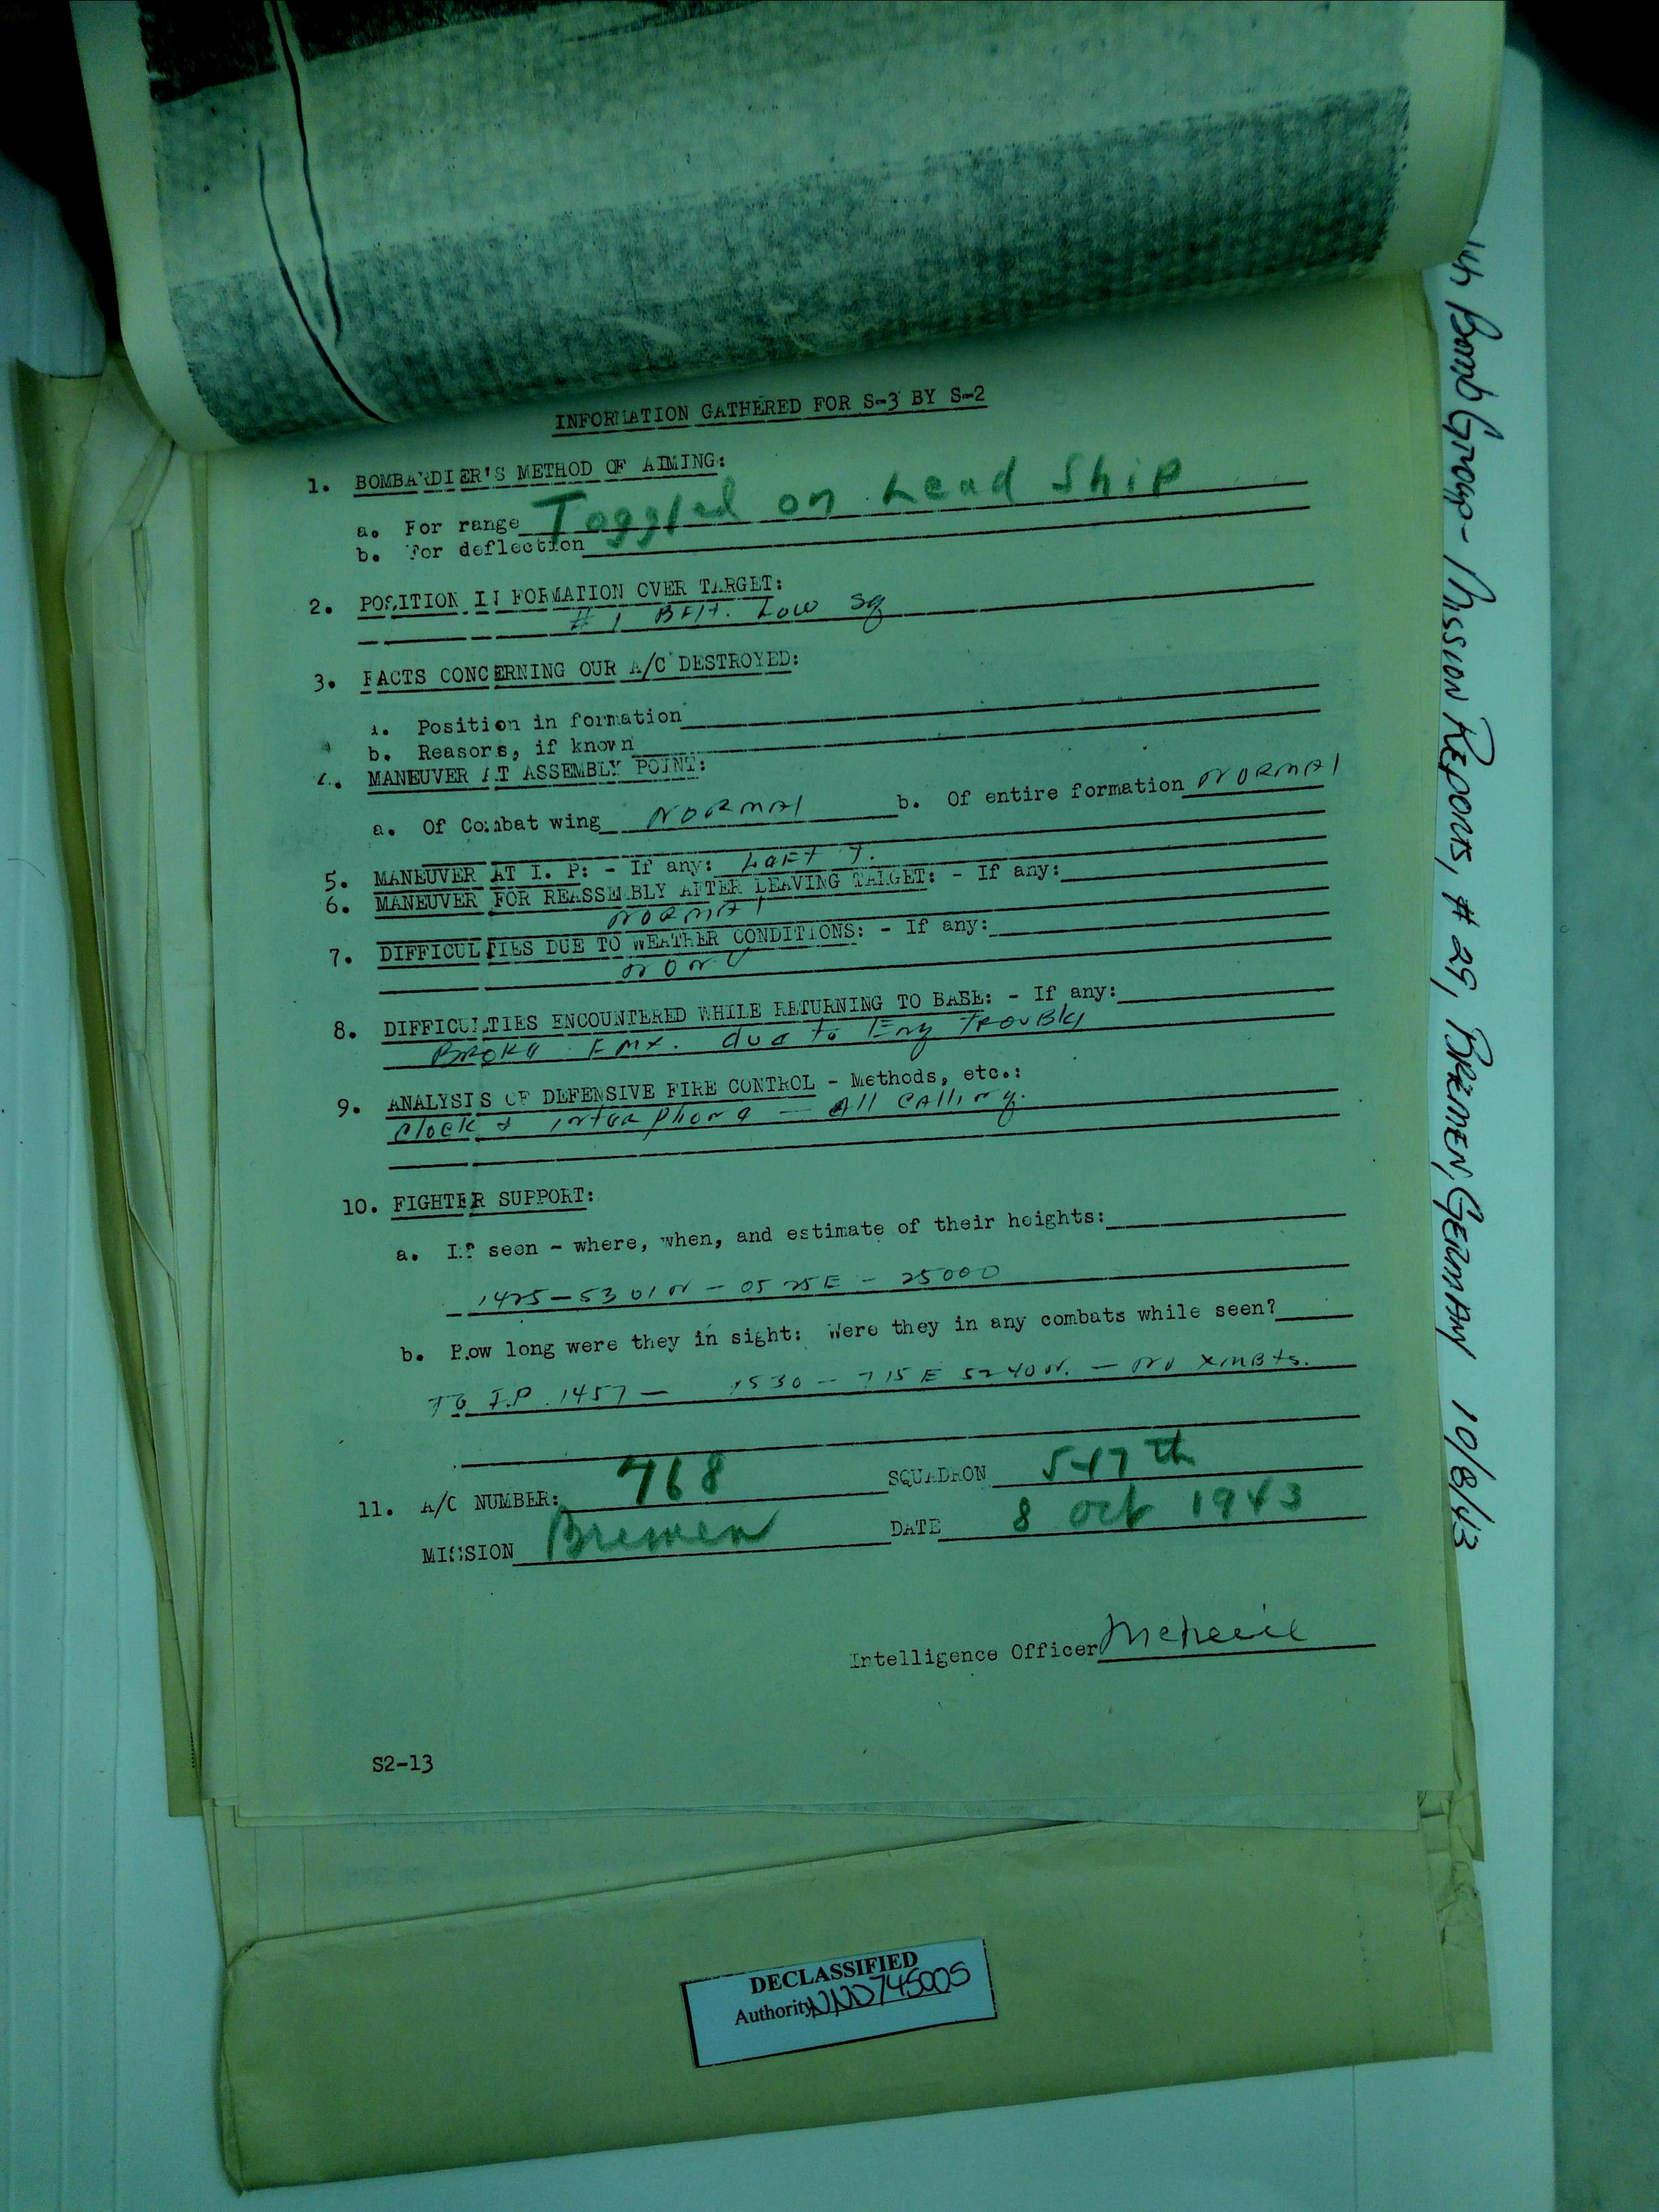 INFORMATION GATHERED FOR S-3 BY S-2
1. BOMBARDIER'S METHOD OF AIMING:
a. For range Toggled on Lead Ship
b. For deflection
2. POSITION IN FORMATION OVER TARGET:
# 1 Low Sq
3. FACTS CONCERNING OUR A/C DESTROYED:
a. Position in formation
b. Reasons, if known
4. MANEUVER AT ASSEMBLY POINT:
a. Of Combat wing NORMAl b. Of entire formation NORMAl
5. MANEUVER AT I. P: - If any: LaFt T.
6. MANEUVER FOR REASSEMBLY AFTER LEAVING TARGET: - If any:
NORMAl
7. DIFFICULTIES DUE TO WEATHER CONDITIONS: - If any:
NONE
8. DIFFICULTIES ENCOUNTERED WHILE RETURNING TO BASE: - If any:
Broke FMX. due to Eng Trouble
9. ANALYSIS OF DEFENSIVE FIRE CONTROL - Methods, etc.:
Clock & interphone - All CAlling.
10. FIGHTER SUPPORT:
a. If seen - where, when, and estimate of their heights:
1425 - 5301N - 0525E - 25000
b. How long were they in sight: Were they in any combats while seen?
To I.P. 1457 - 1530 - 715E 5240N. - NO XMBts.
11. A/C NUMBER: 768 SQUADRON 547th
MISSION Bremen DATE 8 Oct 1943
Intelligence Officer
S2-13
DECLASSIFIED
Authority NND745005
Bomb Group - Mission Reports, # 25, BREMEN, GERMANY 10/8/43